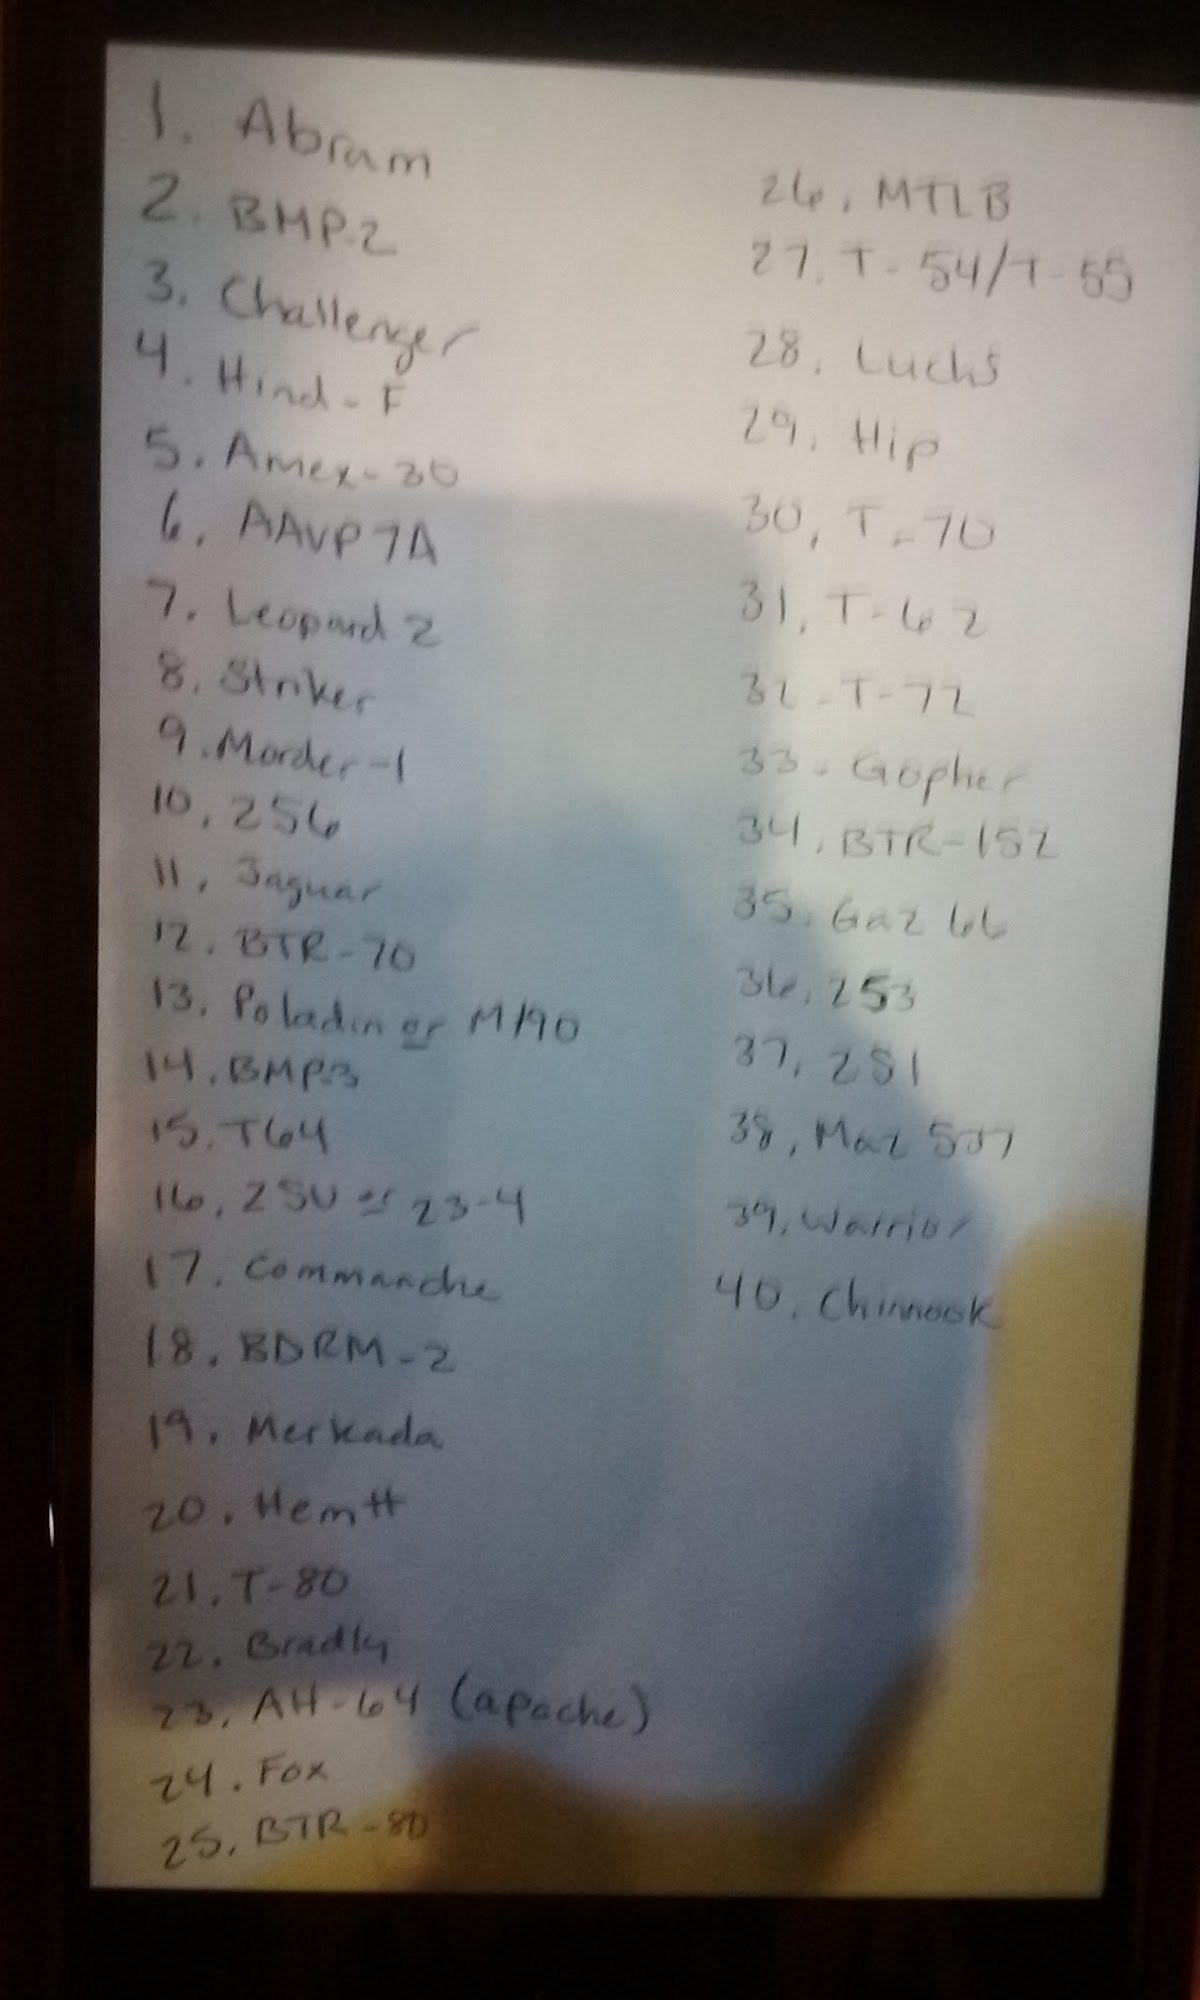 1. Abram
2. BMP-2
3. Challenger
4. Hind-F
5. Amex-30
6. AAVP7A
7. Leopard 2
8. Striker
9. Morder-1
10. 2S6
11. Jaguar
12. BTR-70
13. Poladin or M190
14. BMP-3
15. T64
16. ZSU or 23-4
17. Commanche
18. BDRM-2
19. Merkada
20. Hemtt
21. T-80
22. Bradly
23. AH-64 (apache)
24. Fox
25. BTR-80
26. MTLB
27. T-54/T-55
28. Luchs
29. Hip
30. T-70
31. T-62
32. T-72
33. Gopher
34. BTR-152
35. Gaz 66
36. 2S3
37. 2S1
38. Maz
39. Warrior
40. Chinnook